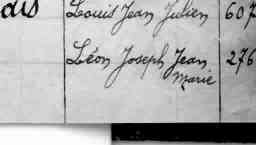 dis Louis Jean Julien 607
Léon Joseph Jean 276
Marie